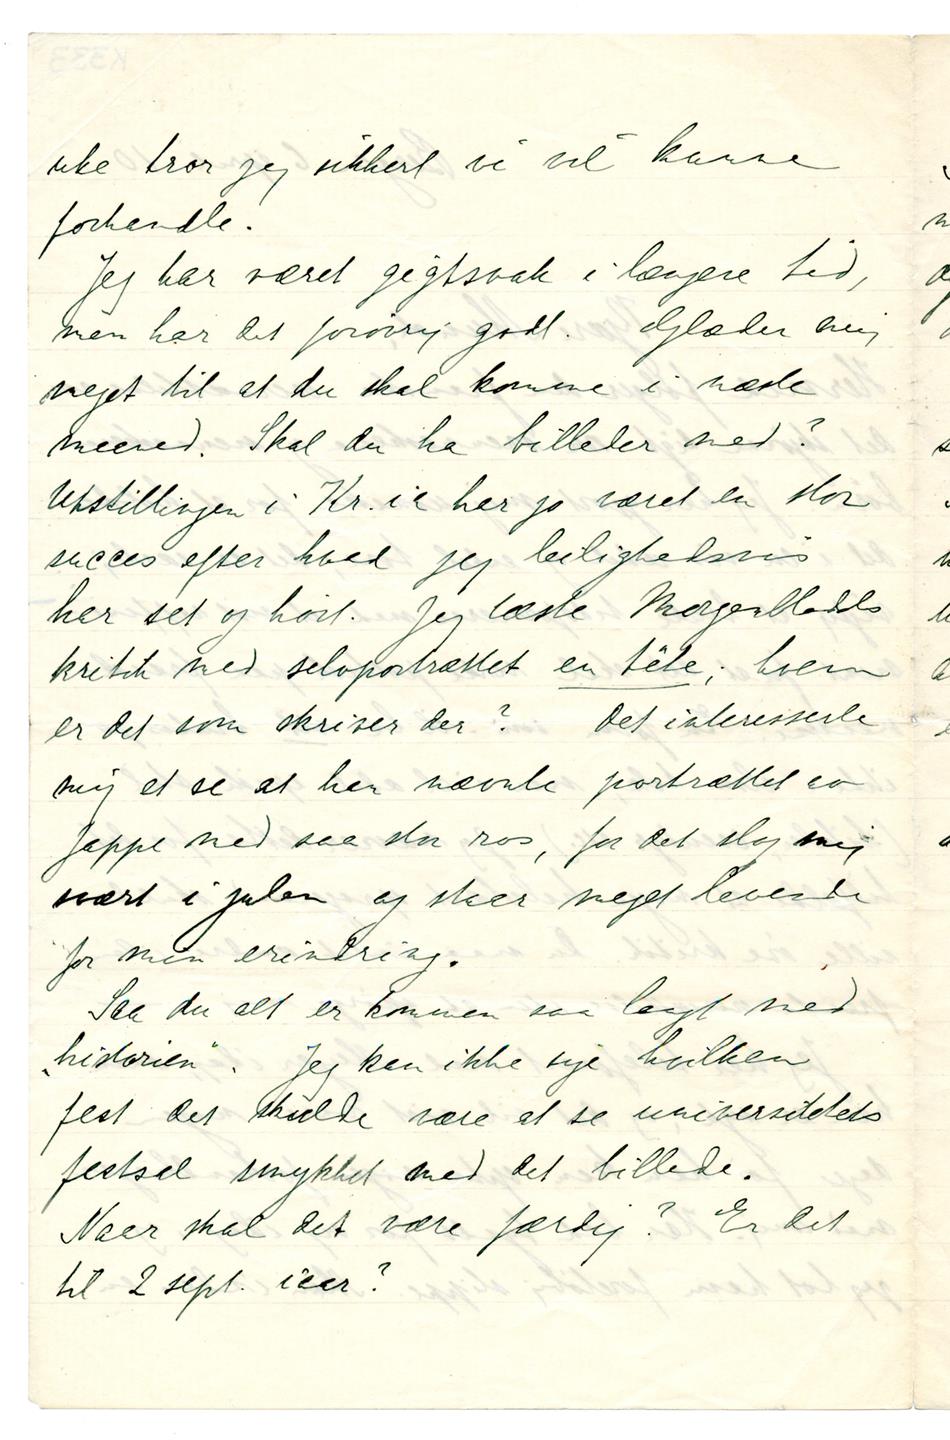 uke tror jeg sikkert vi vil kunne
forhandle.
Jeg har været gigtsvak i længere tid,
men har det forøvrig godt. Glæder mig
meget til at du skal komme i næste
maaned. Skal du ha billeder med?
Utstillingen i Kr.ia har jo været en stor
succes efter hvad jeg leilighedsvis
har set og hört. Jeg læste Morgenbladets
kritik med selvportrættet en tête; hvem
er det som skriver der? Det interesserte
mig at se at han nævnte portrættet av
Jappe med saa stor ros, for det slog mig
svært i julen og staar meget levende
for min erindring.
Saa du alt er kommen saa langt med
„historien“. Jeg kan ikke sige hvilken
fest det skulde være at se universitetets
festsal smykket med det billede.
Naar skal det være færdig? Er det
til 2 sept. iaar?